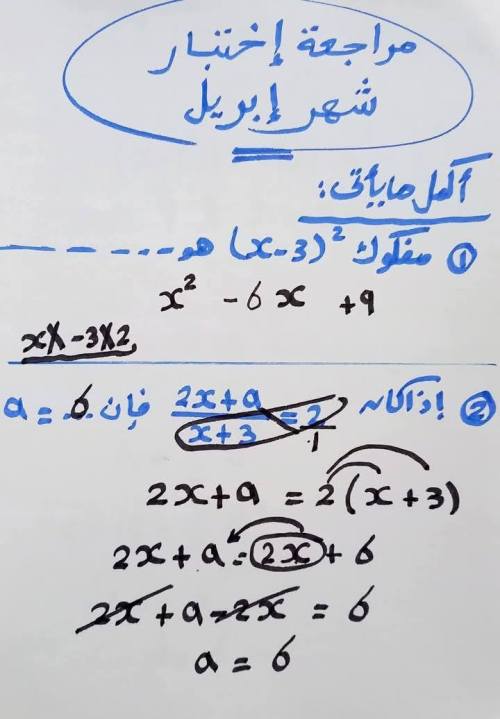 مراجعة إختبار
شهر إبريل
أكمل ما يأتى :
① مفكوك (x-3)² هو - - - - - - -
x² - 6x + 9
x X -3 X 2
② إذا كان (2x+a)/(x+3) = 2/1 فإن a = 6
2x+a = 2(x+3)
2x+a = 2x + 6
2x + a - 2x = 6
a = 6